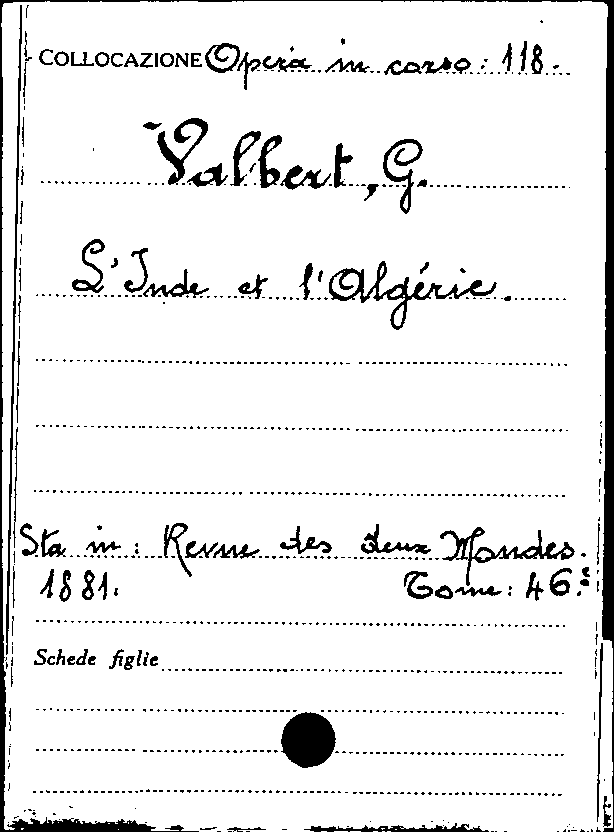 COLLOCAZIONE Opera in corso: 118.
Valbert, G.
L'Inde et l'Algérie.
Sta in: Revue des deux Mondes.
1881. Tome: 46.e
Schede figlie